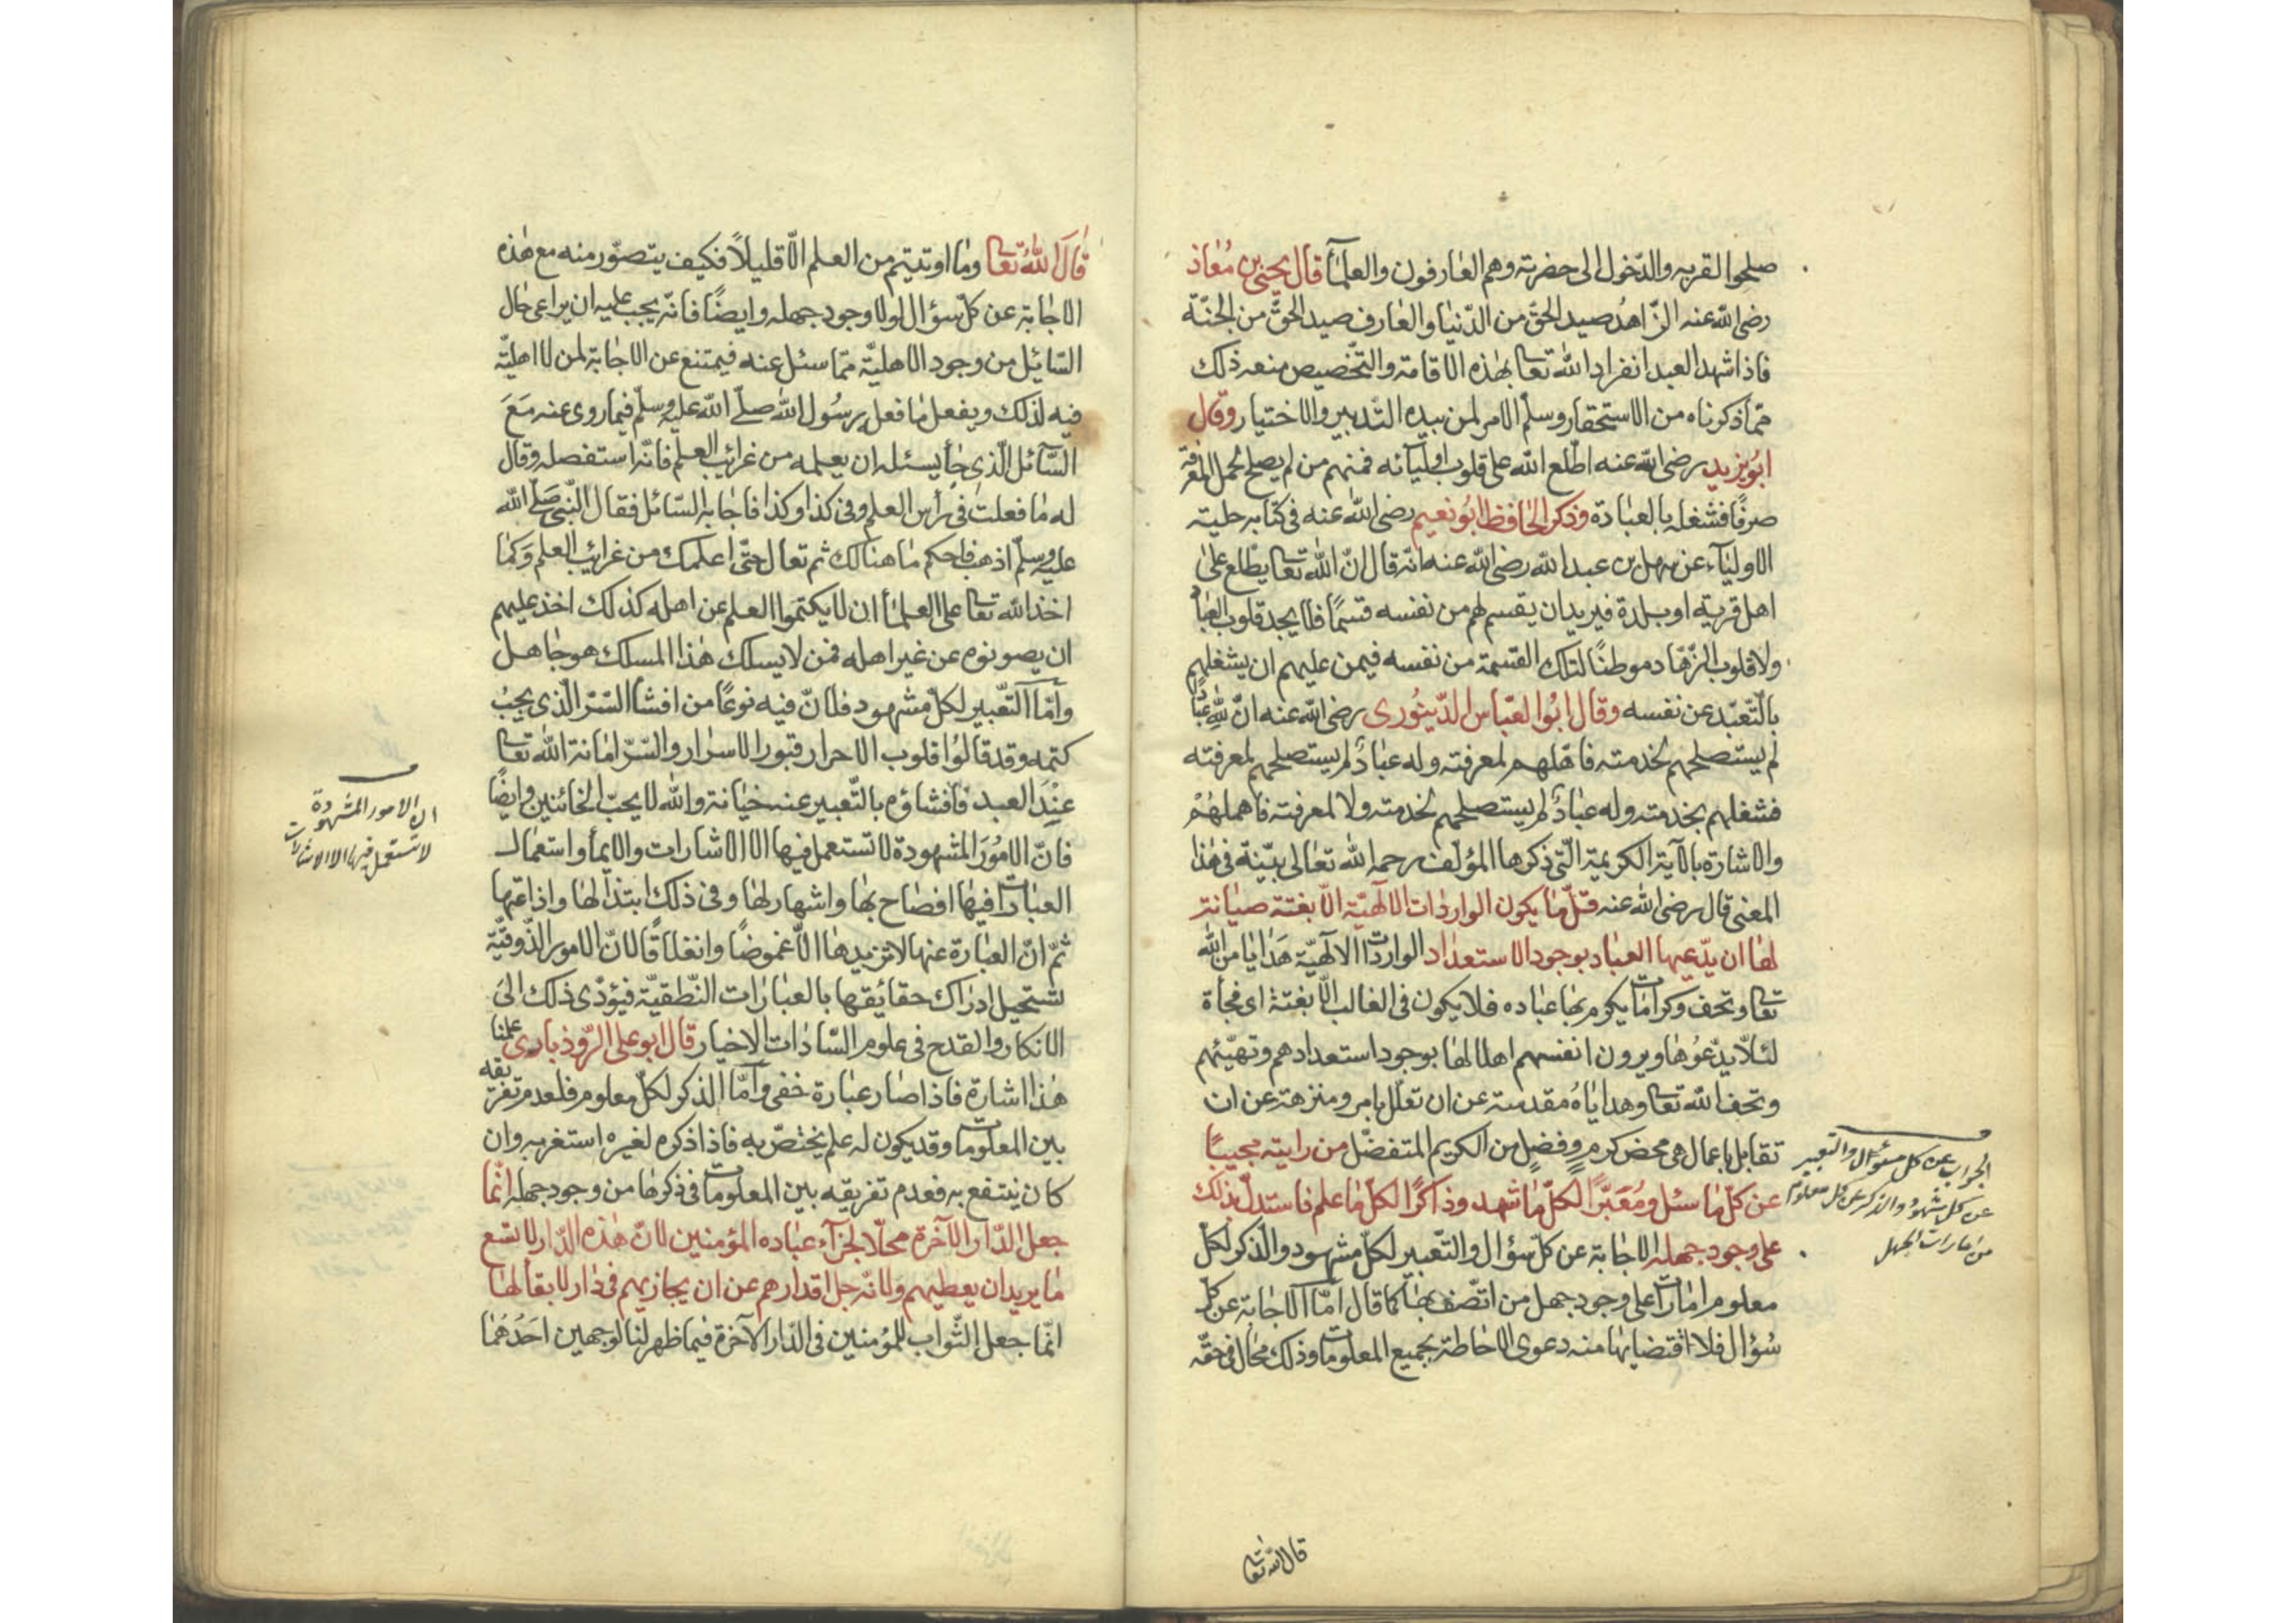 صلحوا لقربه والدّخول الى حضرته وهم العارفون والعلمآء قال يحيى بن مُعاذ
رضى الله عنه الزّاهدُ صيد الحقّ من الدّنيا والعارف صيد الحقّ من الجنّة
فاذا شهد العبد انفراد الله تعا بهٰذه الاقامة والتّخصيص منعه ذلك
ممّا ذكرناه من الاستحقار وسلّم الامر لمن بيده التّدبير والاختيار وقال
ابُو يزيد رضى الله عنه اطّلع الله على قلوب اوليآئه فمنهم من لم يصلح لحمل المعرفة
صرفًا فشغله بالعبادة وذكر الحافظ ابُو نعيم رضى الله عنه فى كتابه حلية
الاوليآء عن سهل بن عبد الله رضى الله عنه انّه قال انّ الله تعا يطّلع على
اهل قرية او بلدة فيريد ان يقسم لهم من نفسه قسمًا فلا يجد قلوب العباد
ولا قلوب الزّهّاد موطنًا لتلك القسمة من نفسه فيمن عليهم ان يشغلهم
بالتّعبّد عن نفسه وقال ابُو العبّاس الدّينورى رضى الله عنه انّ لله عبادًا
لم يستصلحهم لخدمته فاهّلهم لمعرفته وله عبادٌ لم يستصلحهم لمعرفته
فشغلهم بخدمته وله عبادٌ لم يستصلحهم لخدمته ولا لمعرفته فاهملهُمْ
والاشارة بالآية الكريمة الّتى ذكرها المؤلّف رحمه الله تعالى بيّنة فى هٰذا
المعنى قال رضى الله عنه قلّ ما يكون الواردات الالٓهيّة الّا بغتة صيانة
لها ان يدّعيها العباد بوجود الاستعداد الواردات الالٓهيّة هَدايا من الله
تعا وتحف وكرامات يكرم بها عباده فلا يكون فى الغالب الّا بغتة اى فجأة
لئلّا يدّعُوها ويرون انفسهم اهلا لها بوجود استعدادهم وتهيّئهم
وتحف الله تعا وهداياهُ مقدسة عن ان تعلّل بامر ومنزهة عن ان
تقابل باعمال هى محض كرمٍ وفضلٍ من الكريم المتفضّل من رايته مجيبًا
عن كلّ ما سئل ومُعَبّرًا لكلّ ما شهد وذاكرًا لكلّ ما علم فاستدلّ بذلك
على وجود جهله الاجابة عن كلّ سؤال والتّعبير لكلّ مشهود والذّكر لكلّ
معلوم امارات على وجود جهل من اتّصف بها كما قال امّا الاجابة عن كلّ
سُؤال فلاقتضايها منه دعوى الاحاطة بجميع المعلومات وذلك محال فى حقّه
الجواب عن كل سئوال والتعبير
عن كل شهود والذكر عن كل معلوم
من امارات الجهل
قال الله تعا
قَالَ اللهُ تعا وما اوتيتم من العلم الّا قليلًا فكيف يتصوّر منه مع هٰذه
الاجابة عن كلّ سؤال لولا وجود جهله وايضًا فانّه يجب عليه ان يراعى حال
السّائل من وجود الاهليّة ممّا سئل عنه فيمتنع عن الاجابة لمن لا اهليّة
فيه لذلك ويفعل ما فعل رسُول الله صلّى الله عليه وسلّم فيما روى عنه مَعَ
السّآئل الّذى جآ يسئله ان يعلمه من غرائب العلم فانّه استفصله وقال
له ما فعلت فى رأس العلم وفى كذا وكذا فاجابه السّائل فقال النّبى صَلّى الله
عليه وسلّم اذهب فاحكم ما هنالك ثم تعال حتّى اعلمك من غرائب العلم وَكما
اخذ الله تعا على العلمآء ان لا يكتموا العلم عن اهله كذلك اخذ عليهم
ان يصونوه عن غير اهله فمن لا يسلك هٰذا المسلك هو جاهل
وامّا التّعبير لكلّ مشهود فلانّ فيه نوعًا من افشآ السّرّ الّذى يجبُ
كتمه وقد قالُوا قلوب الاحرار قبور الاسرار والسّرّ امانة الله تعا
عِنْدَ العبد فافشاؤه بالتّعبير عنه خيانة والله لا يحبّ الخائنين وايضًا
فانّ الامُورَ المشهودة لا تستعمل فيها الا الاشارات والايمآء واستعمال
العبارات فيها افضاح بها واشهار لها وفى ذلك ابتذال لها واذاعتها
ثمّ انّ العبارة عنها لا تزيدها الّا غموضًا وانغلاقًا لانّ الامور الذّوقيّة
تستحيل ادراك حقائقها بالعبارات النّطقيّة فيؤدّى ذلك الىَ
الانكار والقدح فى علوم السّادات الاخيار قال ابو على الرّوذبارى علمنا
هٰذا اشارة فاذا صار عبارة خفى وامّا الذكر لكلّ معلوم فلعدم تفرقه
بين المعلومات وقد يكون له علم يختصّ به فاذا ذكره لغيره استغربه وان
كان ينتفع به فعدم تفريقه بين المعلومات فى ذكرها من وجود جهله انّما
جعل الدّار الآخرة محلّا لجزآء عباده المؤمنين لانّ هٰذه الدّار لا تسع
ما يريد ان يعطيهم ولانّه جل اقدارهم عن ان يجازيهم فى دار لا بقآ لها
انّما جعل الثّواب للمؤمنين فى الدّار الآخرة فيما ظهر لنا لوجهين احَدُهُما
ان الامور المشهودة
لا تستعمل فيها الا الاشارات